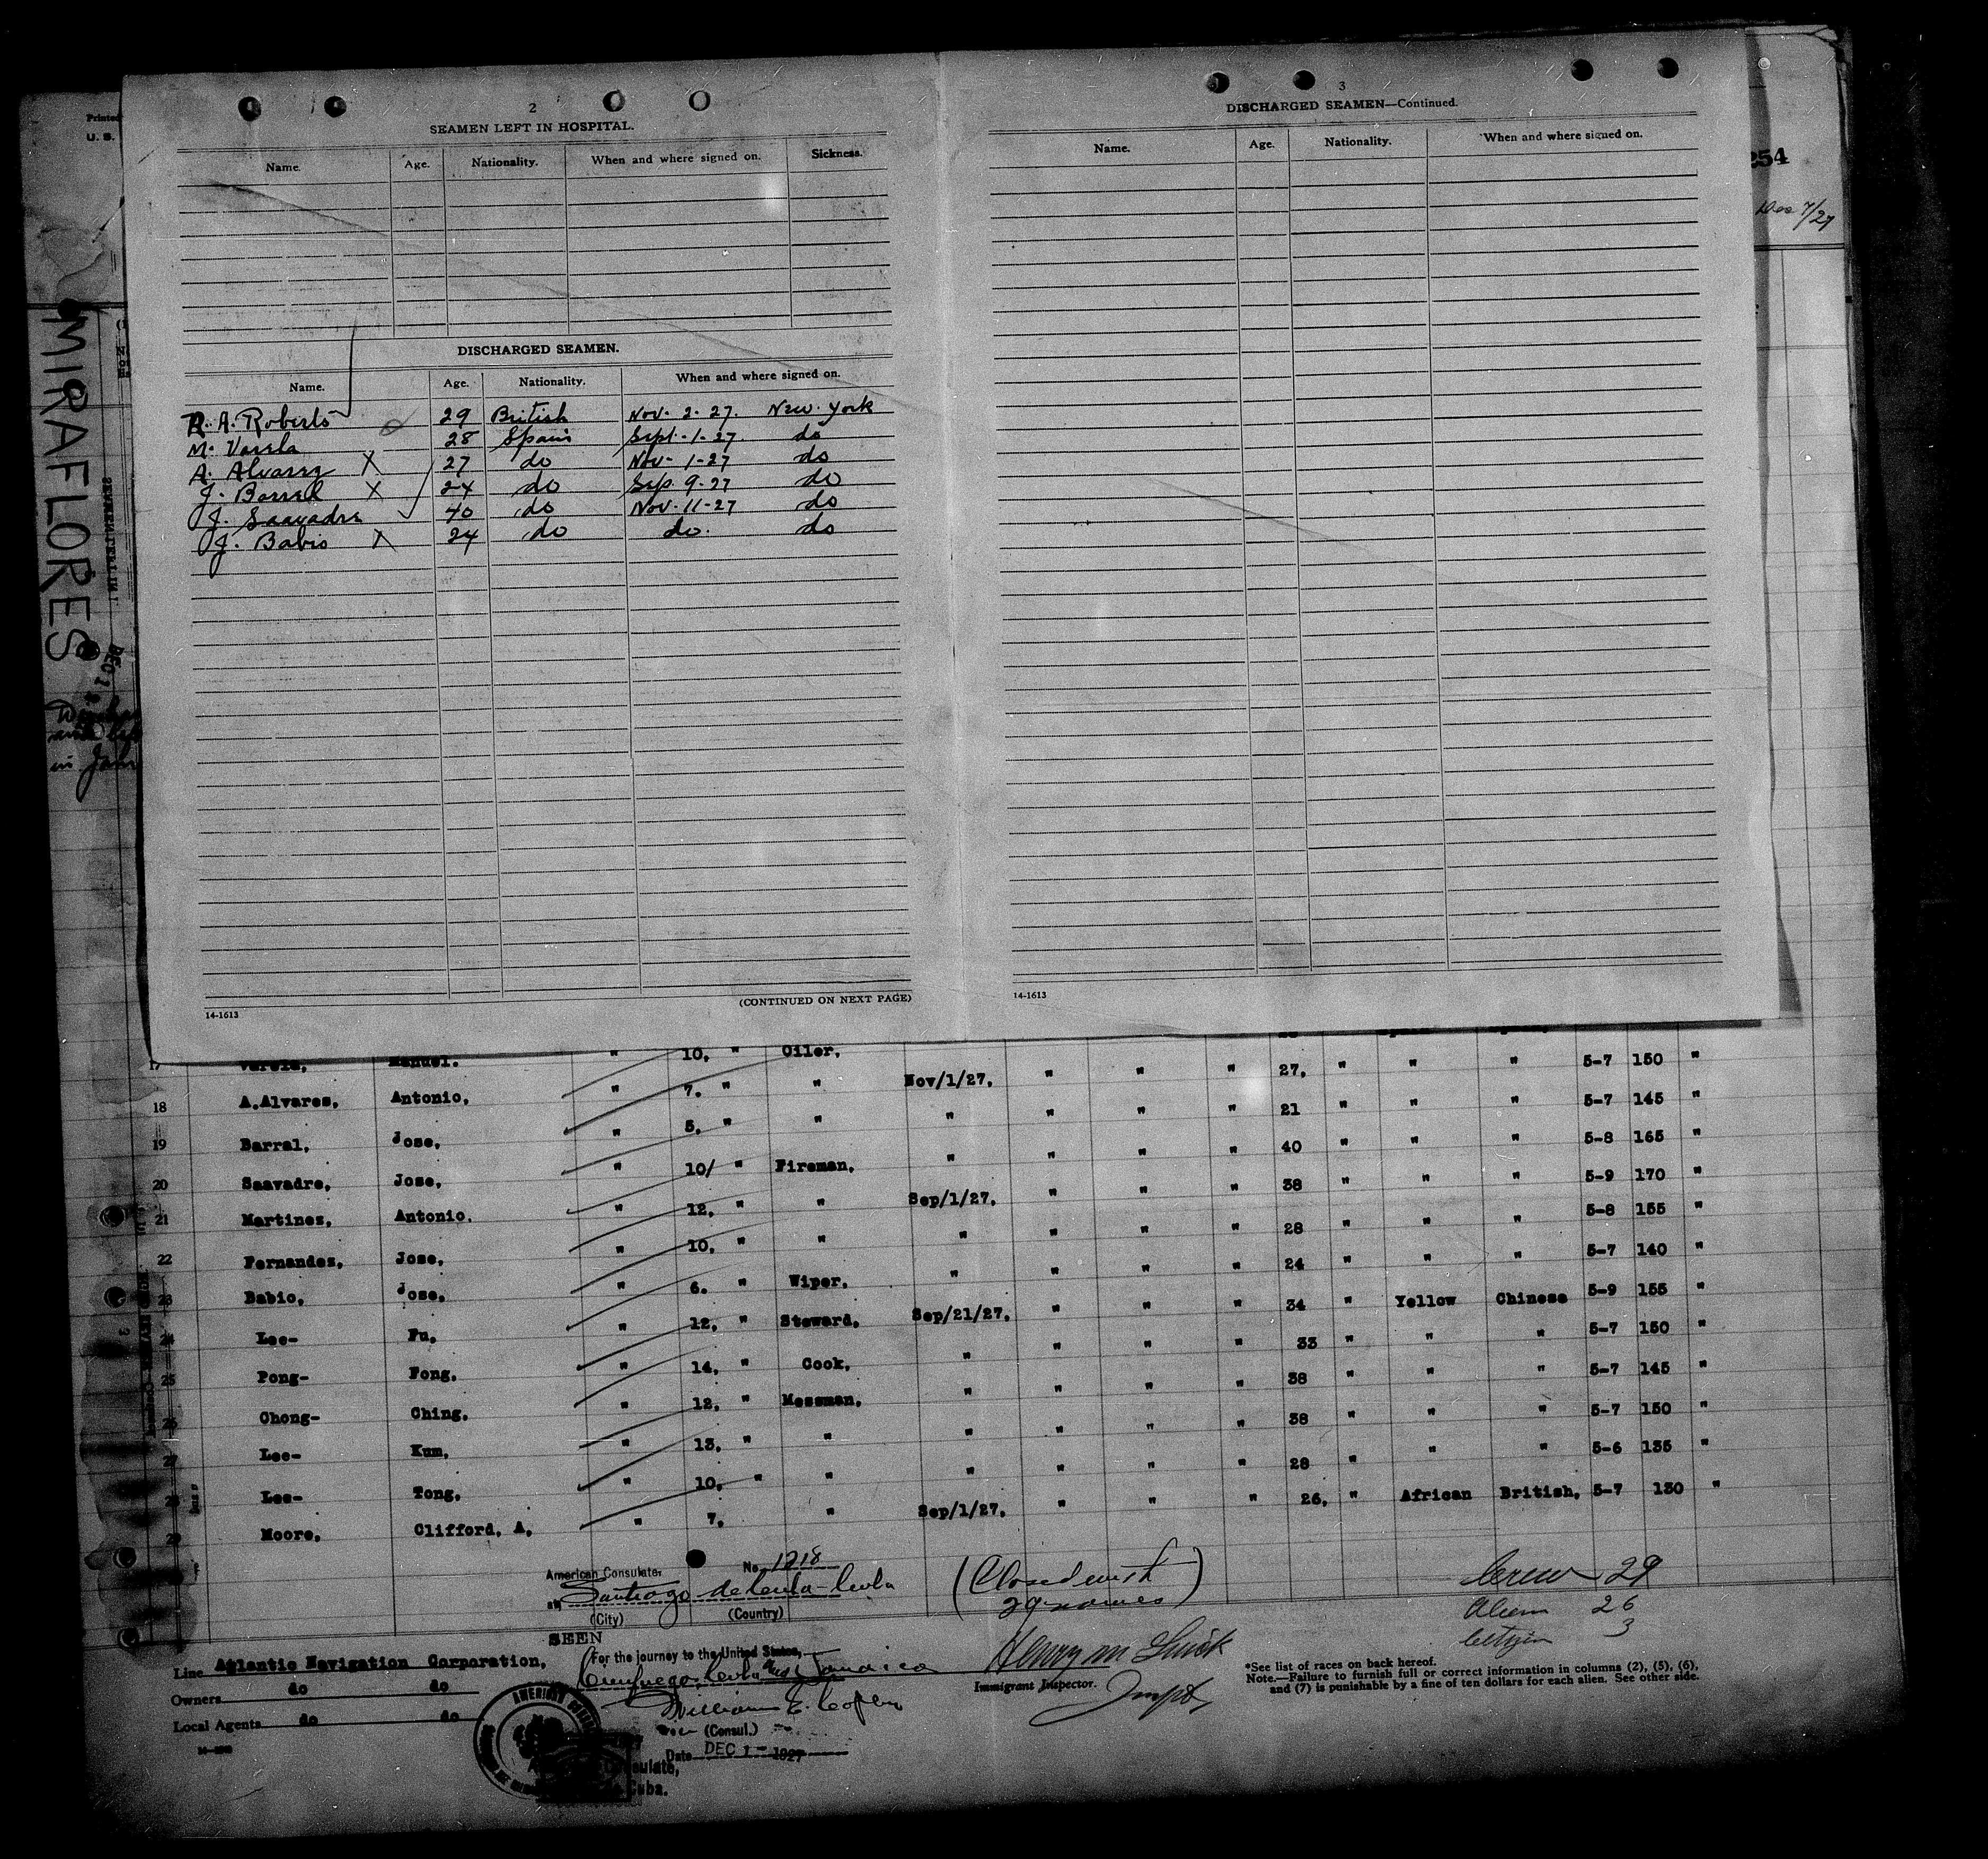 Printed
U. S.
254
Dec 7/27
MIRAFLORES
DEC 1
in Jam
2
SEAMEN LEFT IN HOSPITAL.
Name. Age. Nationality. When and where signed on. Sickness.
DISCHARGED SEAMEN.
Name. Age. Nationality. When and where signed on.
R. A. Roberts 29 British Nov. 2-27. New York
M. Varela 28 Spain Sept. 1-27. do
A. Alvarez X 27 do Nov- 1-27 do
J. Barral X 24 do Sep. 9-27 do
J. Saavadre 40 do Nov. 11-27 do
J. Babio X 24 do do. do
(CONTINUED ON NEXT PAGE)
14-1613
3
DISCHARGED SEAMEN—Continued.
Name. Age. Nationality. When and where signed on.
14-1613
17 Varela, Manuel. " 10. " Oiler.
18 A.Alvares, Antonio, " 7. " " Nov/1/27. " " " 27. " " " 5-7 150 "
19 Barral, Jose, " 5. " " " " " " 21 " " " 5-7 145 "
20 Saavadre, Jose, " 10/ " Fireman, " " " " 40 " " " 5-8 165 "
21 Martines, Antonio. " 12. " " Sep/1/27. " " " 38 " " " 5-9 170 "
22 Fernandez, Jose, " 10. " " " " " " 28 " " " 5-8 155 "
23 Babio, Jose, " 6. " Wiper. " " " " 24 " " " 5-7 140 "
24 Lee- Fu. " 12. " Steward. Sep/21/27. " " " 34 " Yellow Chinese 5-9 155 "
25 Pong- Fong. " 14. " Cook. " " " " 33 " " " 5-7 150 "
26 Chong- Ching. " 12. " Messman. " " " " 38 " " " 5-7 145 "
27 Lee- Kum. " 13. " " " " " " 38 " " " 5-7 150 "
28 Lee- Tong. " 10. " " " " " " 28 " " " 5-6 135 "
29 Moore, Clifford, A, " 7. " Sep/1/27. " " " 26. " African British, 5-7 130 "
American Consulate, No. 1218
at Santiago de Cuba - Cuba
(City) (Country)
SEEN
For the journey to the United States,
Cienfuegos, Cuba and Jamaica
William E. Copley
Vice (Consul.)
Date DEC 1 - 1927
(Closed with
29 names)
Henry M Quick
Immigrant Inspector.
Crew 29
Alien 26
Citizen 3
Line Atlantic Navigation Corporation,
Owners do do
Local Agents do do
*See list of races on back hereof.
Note.—Failure to furnish full or correct information in columns (2), (5), (6),
and (7) is punishable by a fine of ten dollars for each alien. See other side.